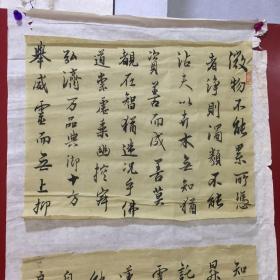 微物不能累所憑
者淨則濁類不能
沾夫以卉木無知猶
資善而成善莫
覩在智猶迷況乎佛
道崇虛乘幽控寂
弘濟万品典御十方
舉威靈而無上抑
知